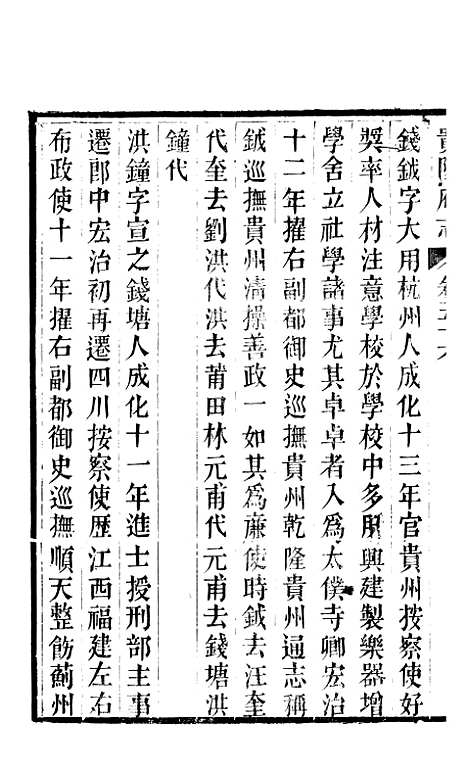 貴陽府志 卷五十六
錢鉞字大用杭州人成化十三年官貴州按察使好
奬率人材注意學校於學校中多所興建製樂器增
學舍立社學諸事尤其卓卓者入爲太僕寺卿宏治
十二年擢右副都御史巡撫貴州乾隆貴州通志稱
鉞巡撫貴州清操善政一如其爲廉使時鉞去汪奎
代奎去劉洪代洪去莆田林元甫代元甫去錢塘洪
鐘代
洪鐘字宣之錢塘人成化十一年進士授刑部主事
遷郎中宏治初再遷四川按察使歴江西福建左右
布政使十一年擢右副都御史巡撫順天整飭薊州